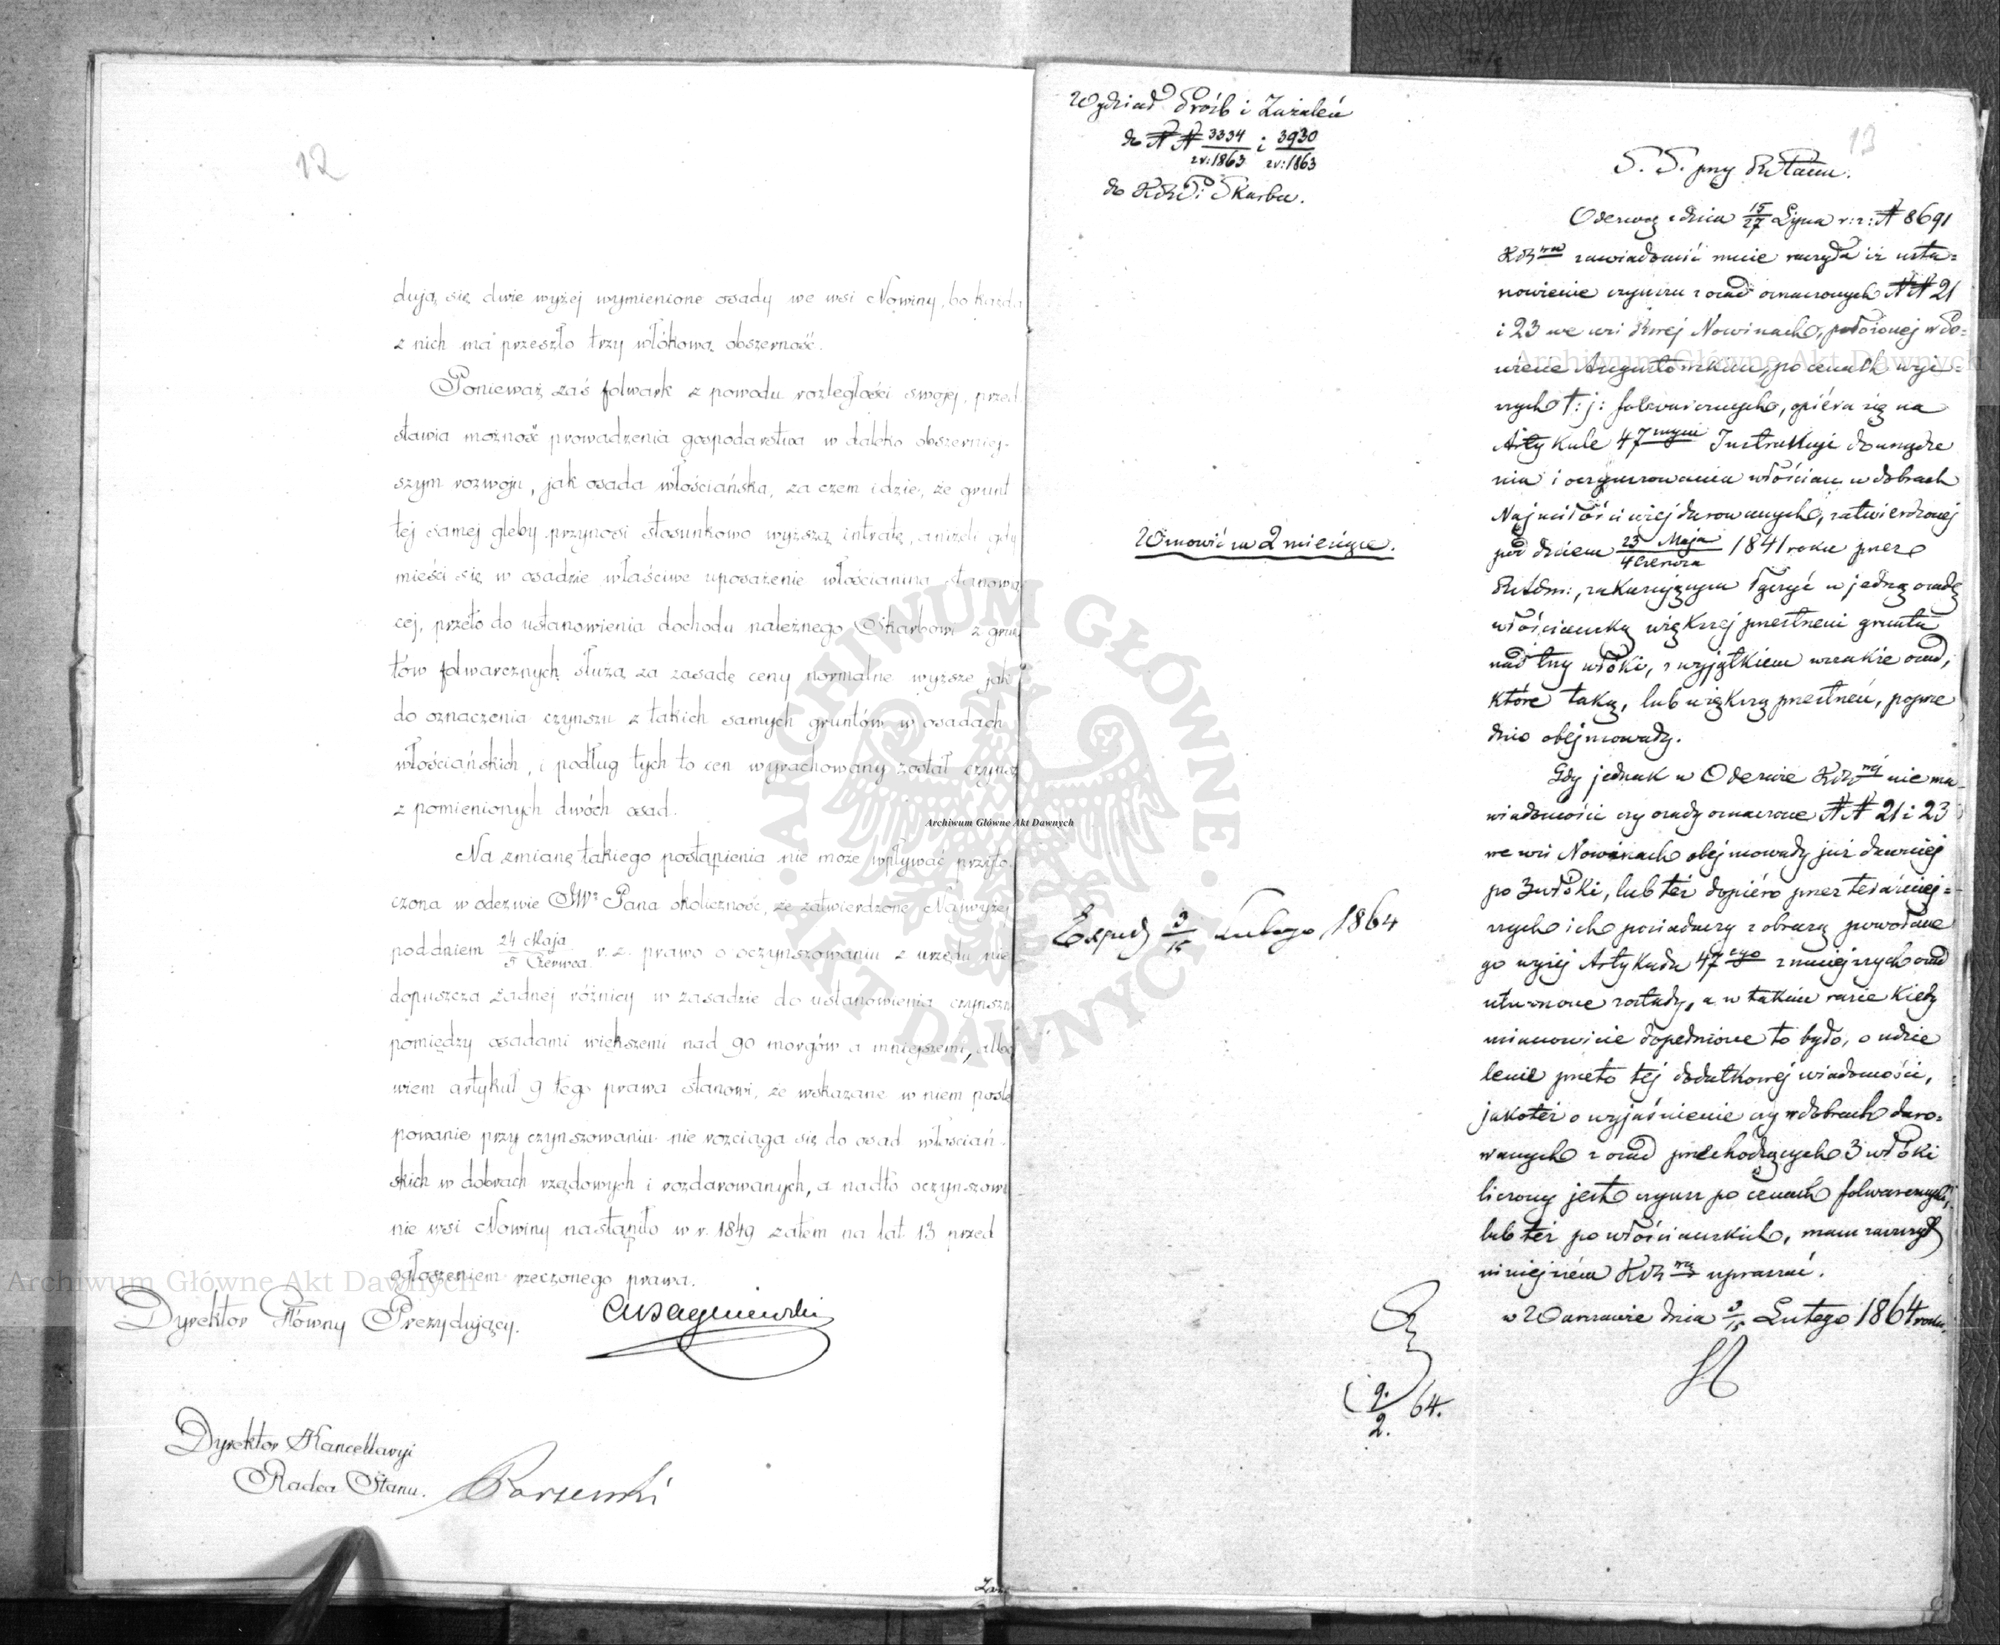 12
dują się dwie wyżej wymienione osady we wsi Nowiny, bo każda
z nich ma przeszło trzy włókową obszerność.
Ponieważ zaś folwark z powodu rozległości swojej, przed
stawia możność prowadzenia gospodarstwa w daleko obszerniej-
szym rozwoju, jak osada włościańska, za czem idzie, że grunt
tej samej gleby przynosi stosunkowo wyższą intratę, aniżeli gdy
mieści się w osadzie właściwe uposażenie włościanina stanowią
cej, przeto do ustanowienia dochodu należnego Skarbowi z grun
tów folwarcznych służą za zasadę ceny normalne wyższe jak
do oznaczenia czynszu z takich samych gruntów w osadach
włościańskich, i podług tych to cen wyrachowany został czynsz
z pomienionych dwóch osad.
Na zmianę takiego postąpienia nie może wpływać przyto
czona w odezwie JWo Pana okoliczność, że zatwierdzone Najwyżej
pod dniem 24 Maja / 5 Czerwca r. z. prawo o oczynszowaniu z urzędu nie
dopuszcza żadnej różnicy w zasadzie do ustanowienia czynszu
pomiędzy osadami większemi nad 90 morgów a mniejszemi, albo
wiem artykuł 9 tego prawa stanowi, że wskazane w niem postę
powanie przy czynszowaniu nie rozciąga się do osad włościań-
skich w dobrach rządowych i rozdarowanych, a nadto oczynszowa
nie wsi Nowiny nastąpiło w r. 1849 zatem na lat 13 przed
ogłoszeniem rzeczonego prawa.
Dyrektor Główny Prezydujący.
Dyrektor Kancellaryi
Radca Stanu.
13
Wydział Próśb i Zażaleń
do NN 3334 / z r: 1863 i 3930 / z r: 1863
do KRP: i Skarbu.
Wznowić za 2 miesiące.
Exped 3/15 Lutego 1864
9./2. 64.
S. S. przy RStanu.
Odezwą z dnia 15/27 Lipca r: z: N 8691
KRwa zawiadomić mnie raczyła iż usta=
nowienie czynszu z osad oznaczonych NN 21
i 23 we wsi Nowinach, położonej w Do=
wienie Augustowskim, po cenach wyż=
szych t: j: folwarcznych, opiera się na
Artykule 47mym Instrukcyi do urządze
nia i oczynszowania włościan w dobrach
Najmiłościwiej darowanych, zatwierdzonej
pod dniem 23 Maja / 4 Czerwca 1841 roku przez
RAdm:, zakazującym łączyć w jedną osadę
włościańską większej przestrzeni gruntu
nad trzy włóki, z wyjątkiem wszakże osad,
które taką, lub większą przestrzeń, poprze
dnio obejmowały.
Gdy jednak w Odezwie KRwej nie ma
wiadomości czy osady oznaczone NN 21 i 23
we wsi Nowinach obejmowały już dawniej
po 3 włóki, lub też dopiero przez teraźniej=
szych ich posiadaczy z obrazą powołane
go wyżej Artykułu 47ego z mniejszych osad
utworzone zostały, a w takim razie kiedy
mianowicie dopełnione to było, o udzie
lenie przeto tej dodatkowej wiadomości,
jakoteż o wyjaśnienie czy w dobrach daro=
wanych z osad przechodzących 3 włóki
liczony jest czynsz po cenach folwarcznych,
lub też po włościańskich, mam zaszczyt
niniejszém KRwą upraszać.
w Warszawie dnia 3/15 Lutego 1864 roku.
Archiwum Główne Akt Dawnych
Archiwum Główne Akt Dawnych
Archiwum Główne Akt Dawnych
ARCHIWUM GŁÓWNE AKT DAWNYCH